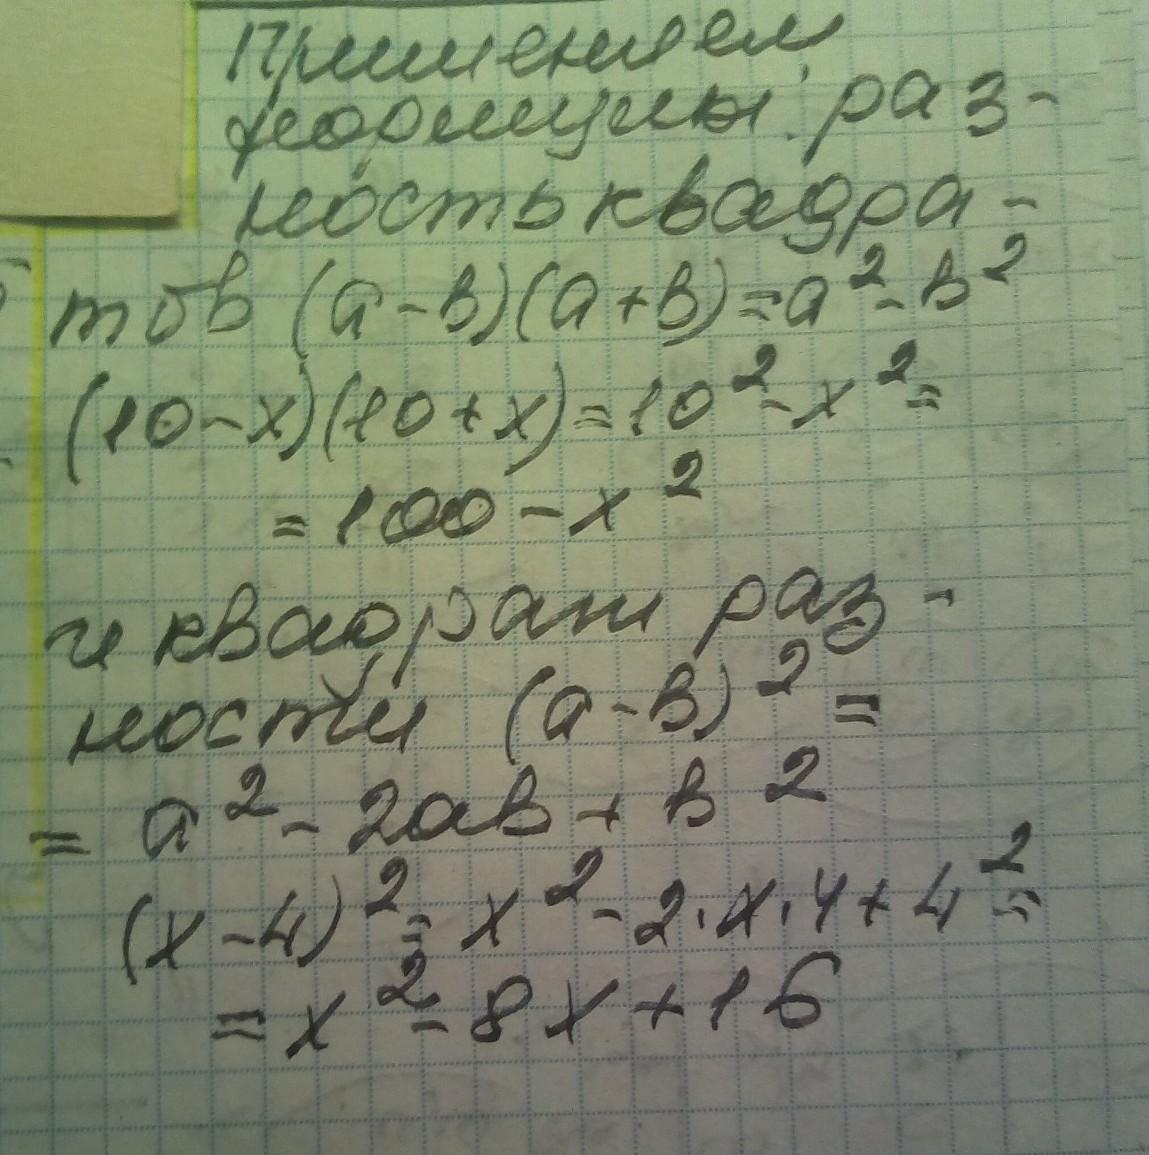 Применяем
формулы: раз-
ность квадра-
тов (a-в)(a+в)=a²-в²
(10-x)(10+x)=10²-x²=
=100-x²
и квадрат раз-
ности (a-в)²=
= a²-2aв+в²
(x-4)²=x²-2·x·4+4²=
=x²-8x+16